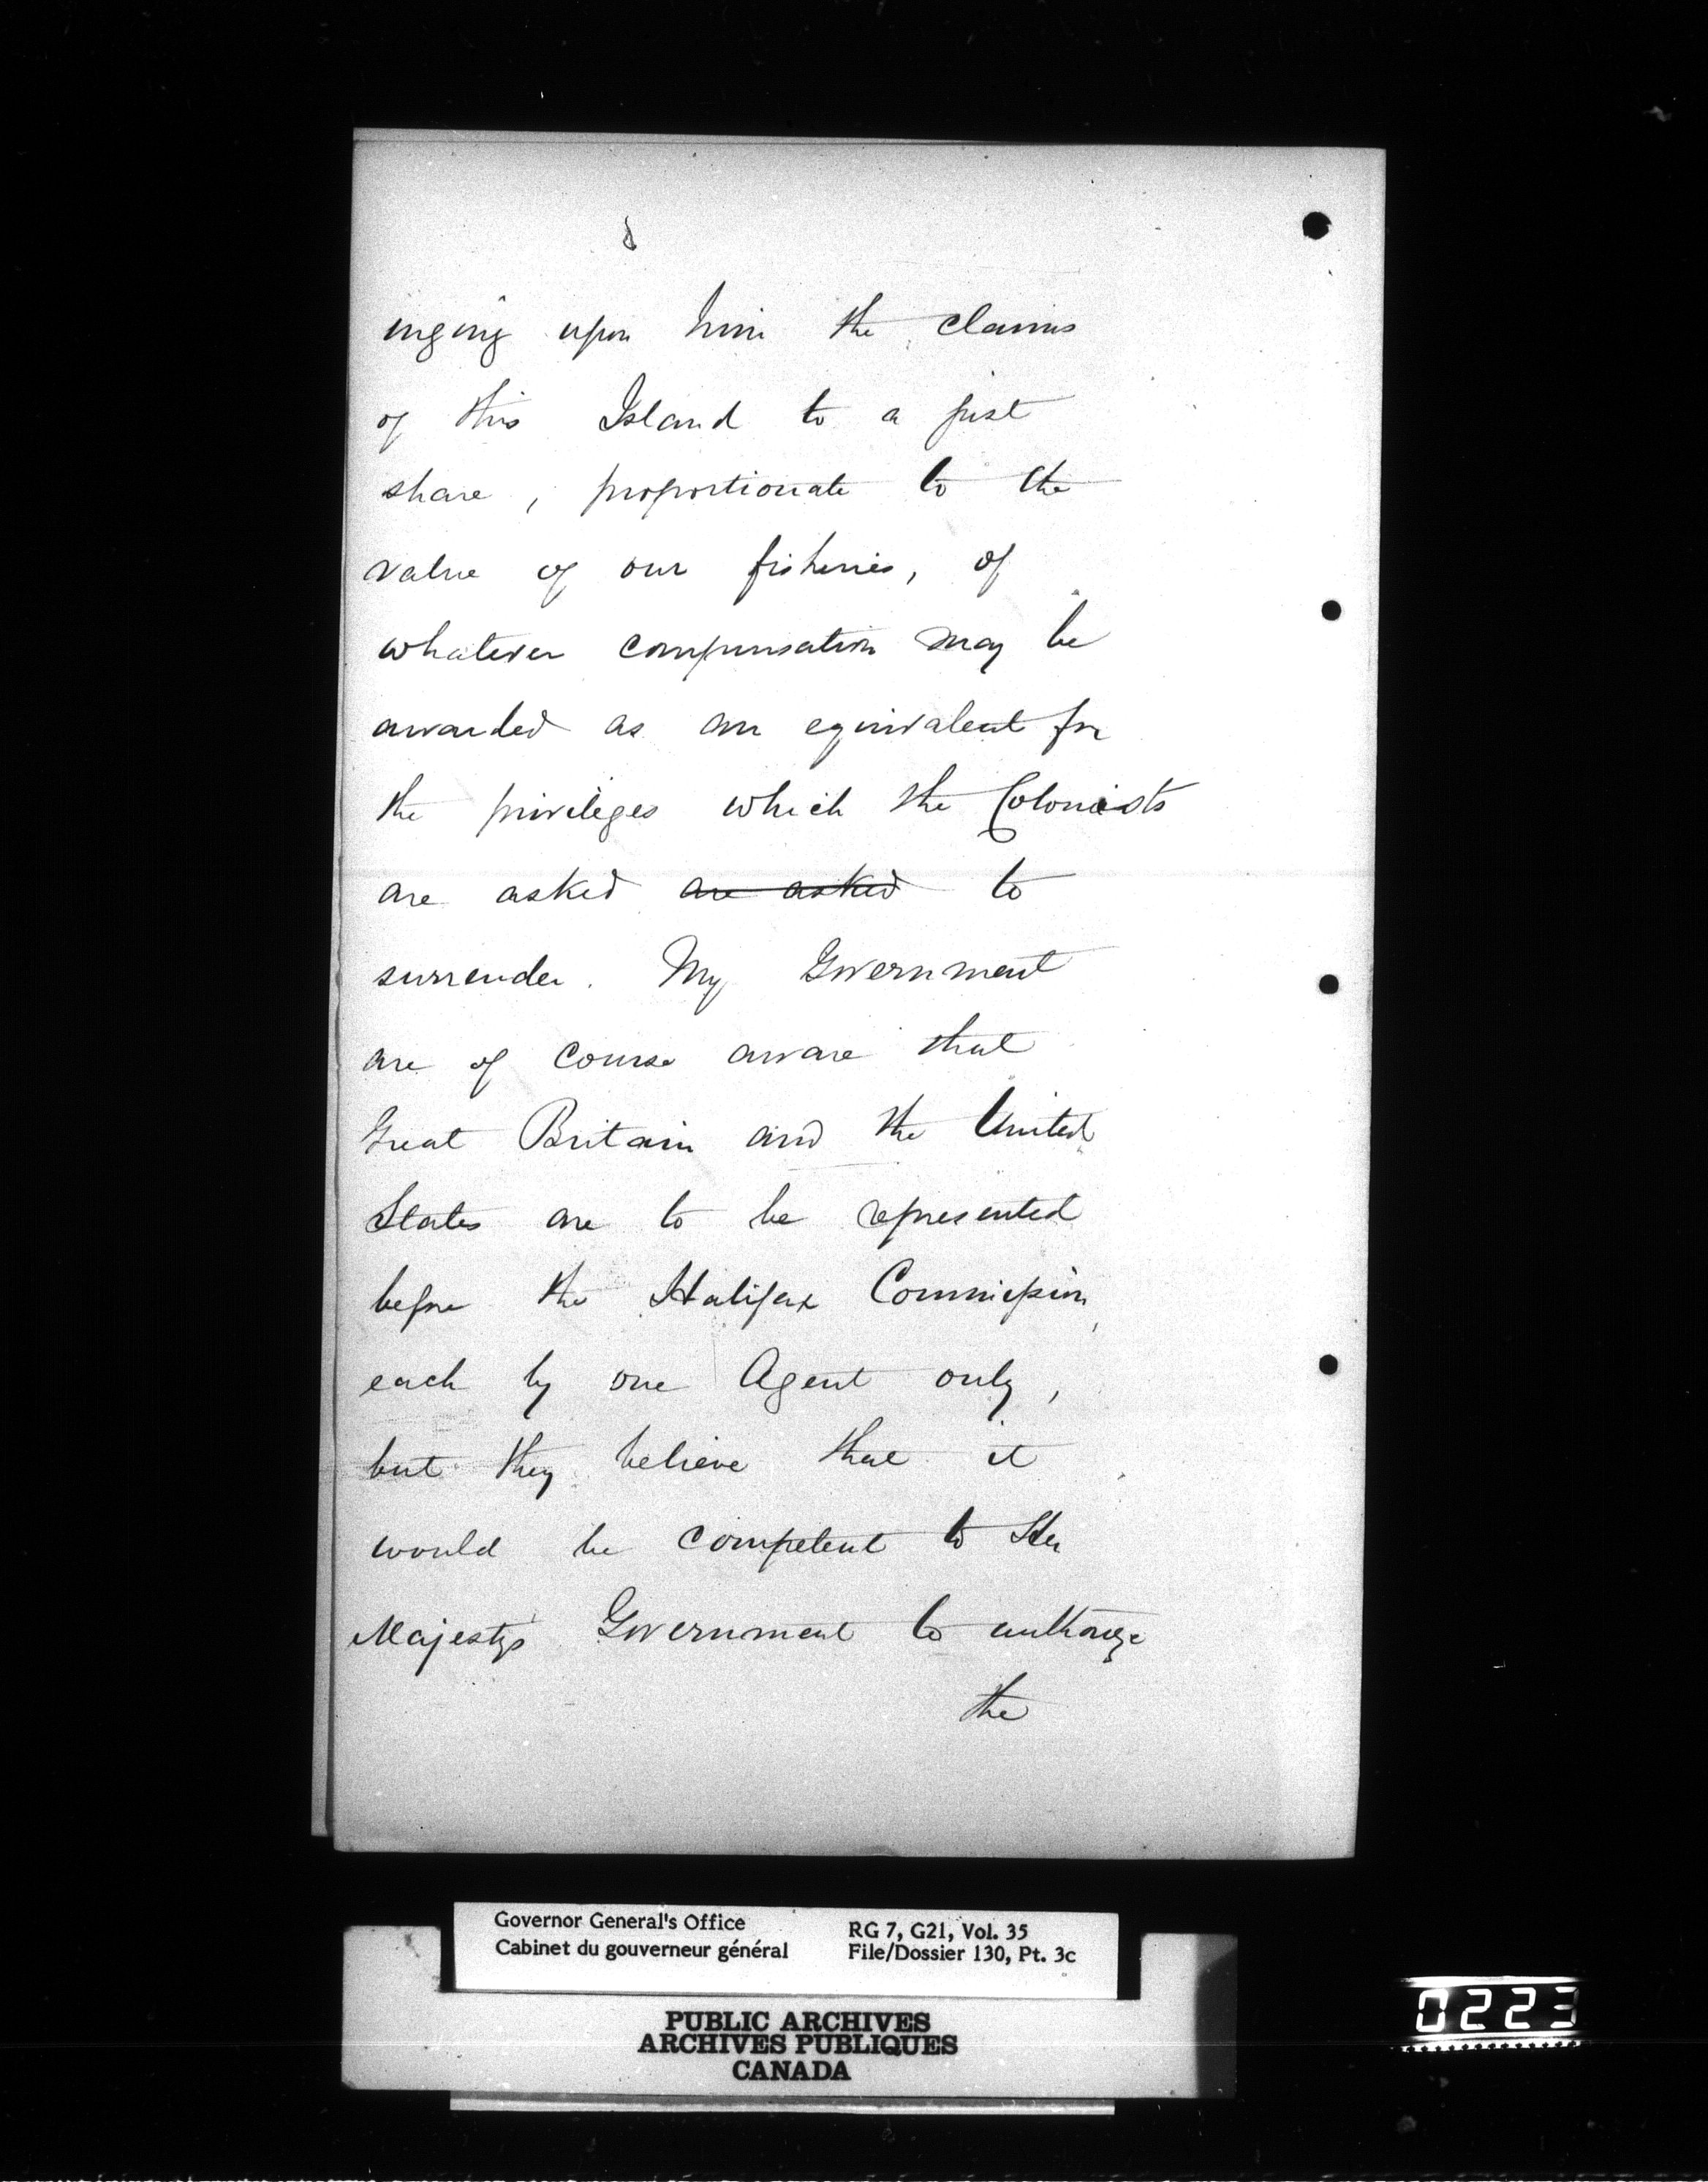 urging upon him the claims
of this Island to a just
share, proportionate to the
value of our fisheries, of
whatever compensation may be
awarded as an equivalent for
the privileges which the Colonists
are asked are asked to
surrender. My Government
are of course aware that
Great Britain and the United
States are to be represented
before the Halifax Commission,
each by one Agent only,
but they believe that it
would be competent to Her
Majesty's Government to authorize
the
Governor General's Office
Cabinet du gouverneur général
RG 7, G21, Vol. 35
File/Dossier 130, Pt. 3c
PUBLIC ARCHIVES
ARCHIVES PUBLIQUES
CANADA
0223